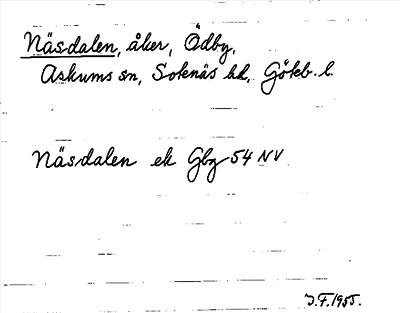 Näsdalen, åker, Ödby,
Askums sn, Sotenäs hd, Götebs. l.
Näsdalen ek Gbg 54 NV
J.F. 1955.